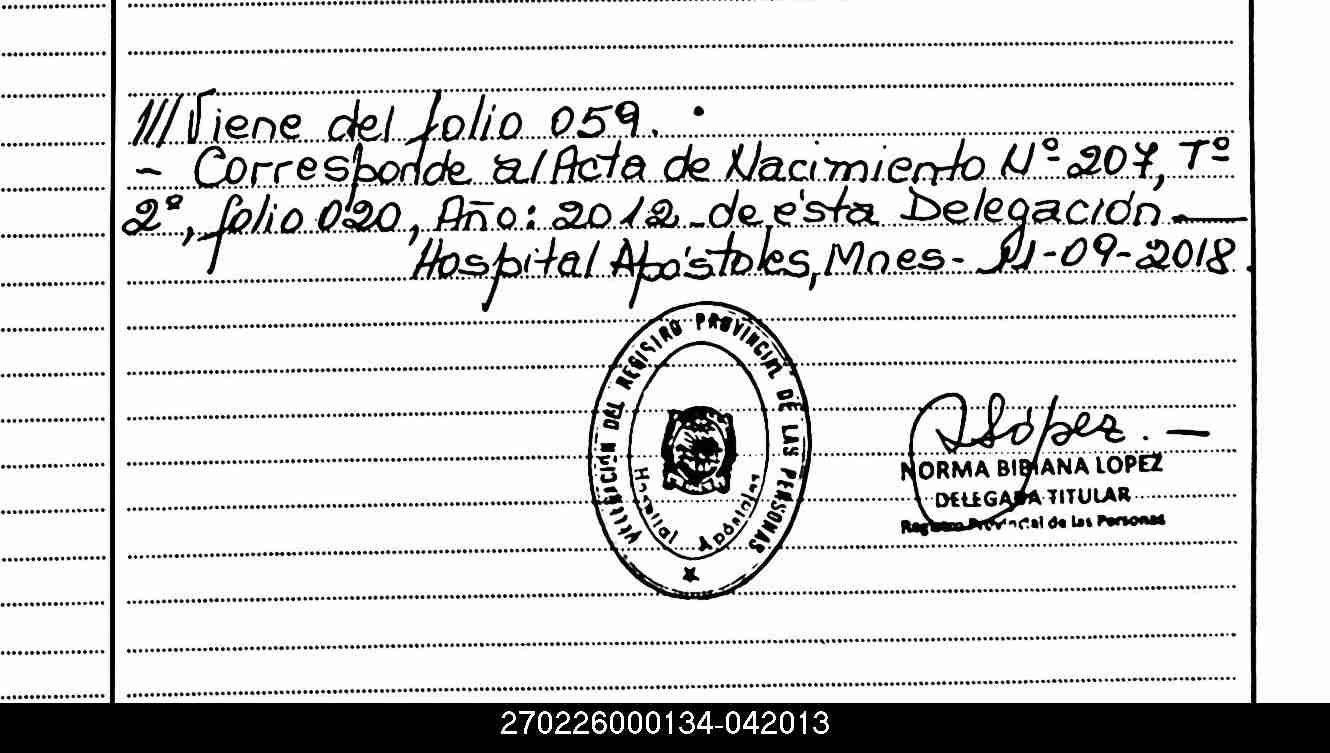 /// Viene del folio 059. -
- Corresponde al Acta de Nacimiento Nº 207, Tº
2º, folio 020, Año: 2012 - de ésta Delegación
Hospital Apóstoles, Mnes - 11-09-2018.
DELEGACIÓN DEL REGISTRO PROVINCIAL DE LAS PERSONAS
Hospital Apóstoles
López. -
NORMA BIBIANA LOPEZ
DELEGADA TITULAR
Registro Provincial de las Personas
270226000134-042013